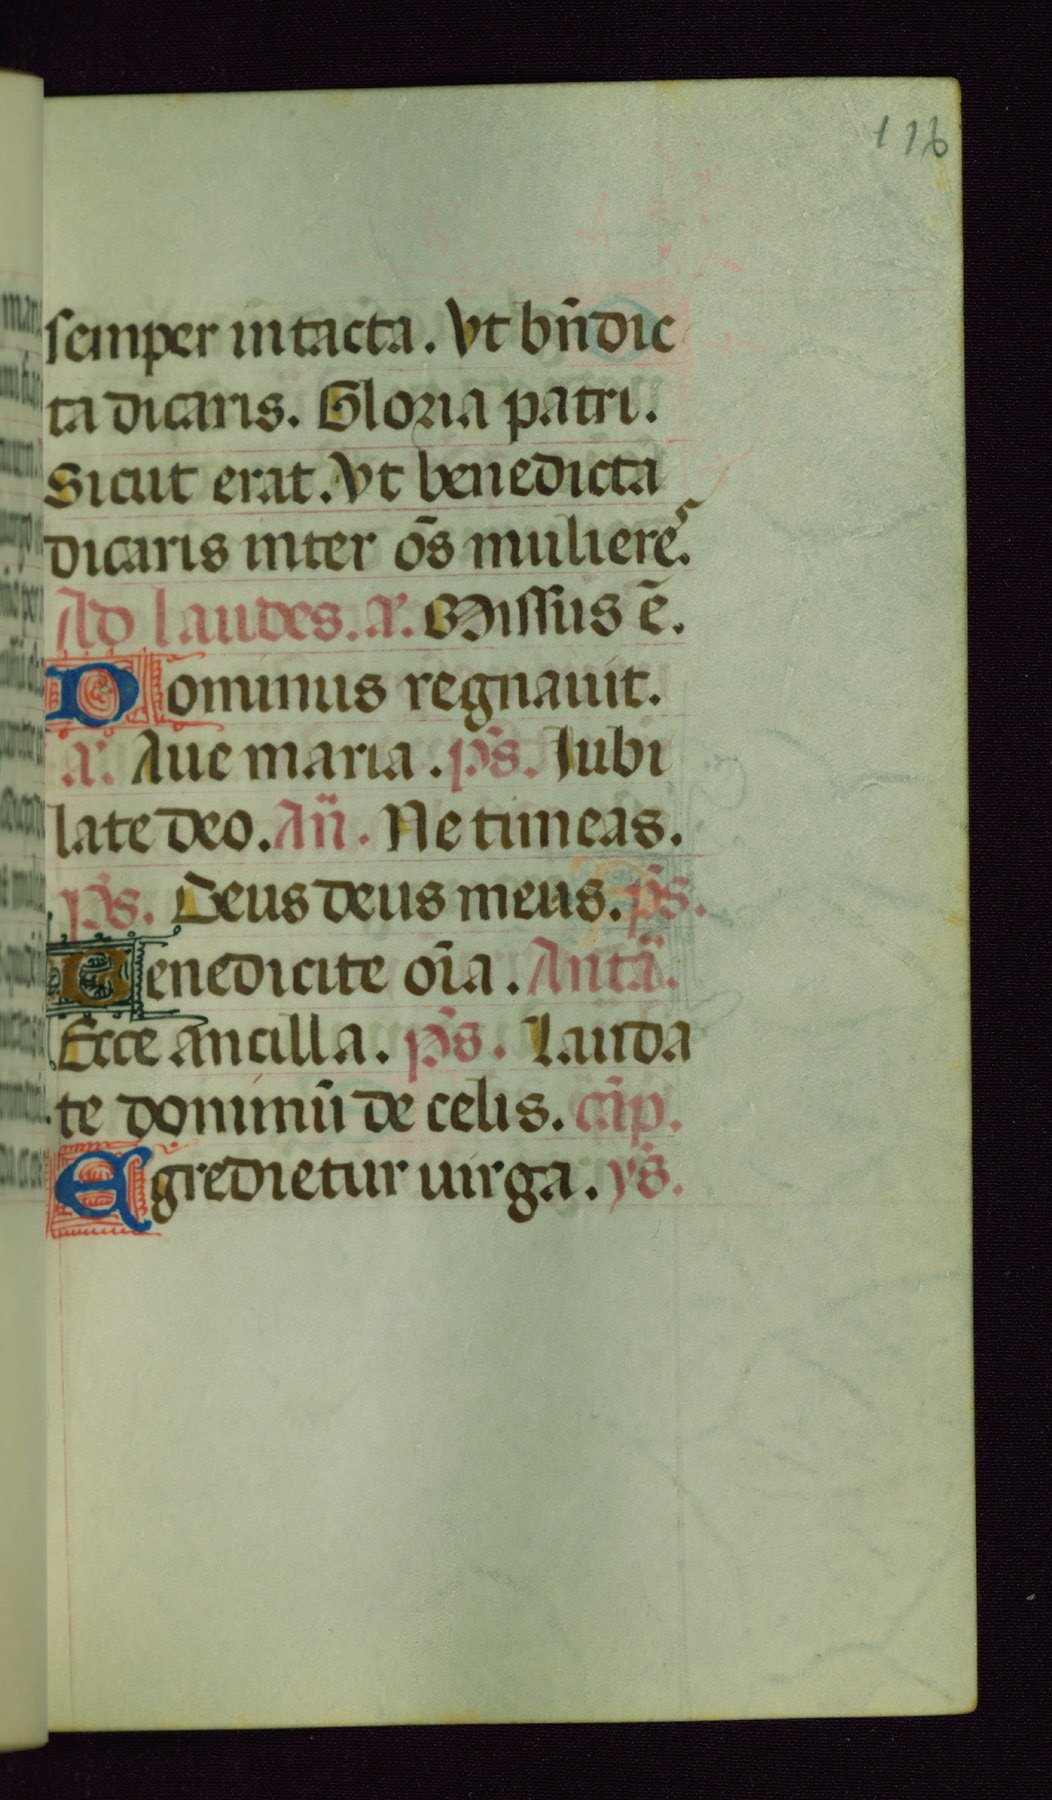 116
semper intacta. Vt bn̄dic
ta dicaris. Gloria patri.
Sicut erat. Vt benedicta
dicaris inter oēs muliere.s
Ad laudes. a. Missus ē.
Dominus regnauit.
a. Aue maria. ps̄. Iubi
late deo. An̄. Ne timeas.
ps̄. Deus deus meus. ps̄.
Benedicite oīa. Antā.
Ecce ancilla. ps̄. Lauda
te dominū de celis. cap̄.
Egredietur uirga. ys̄.